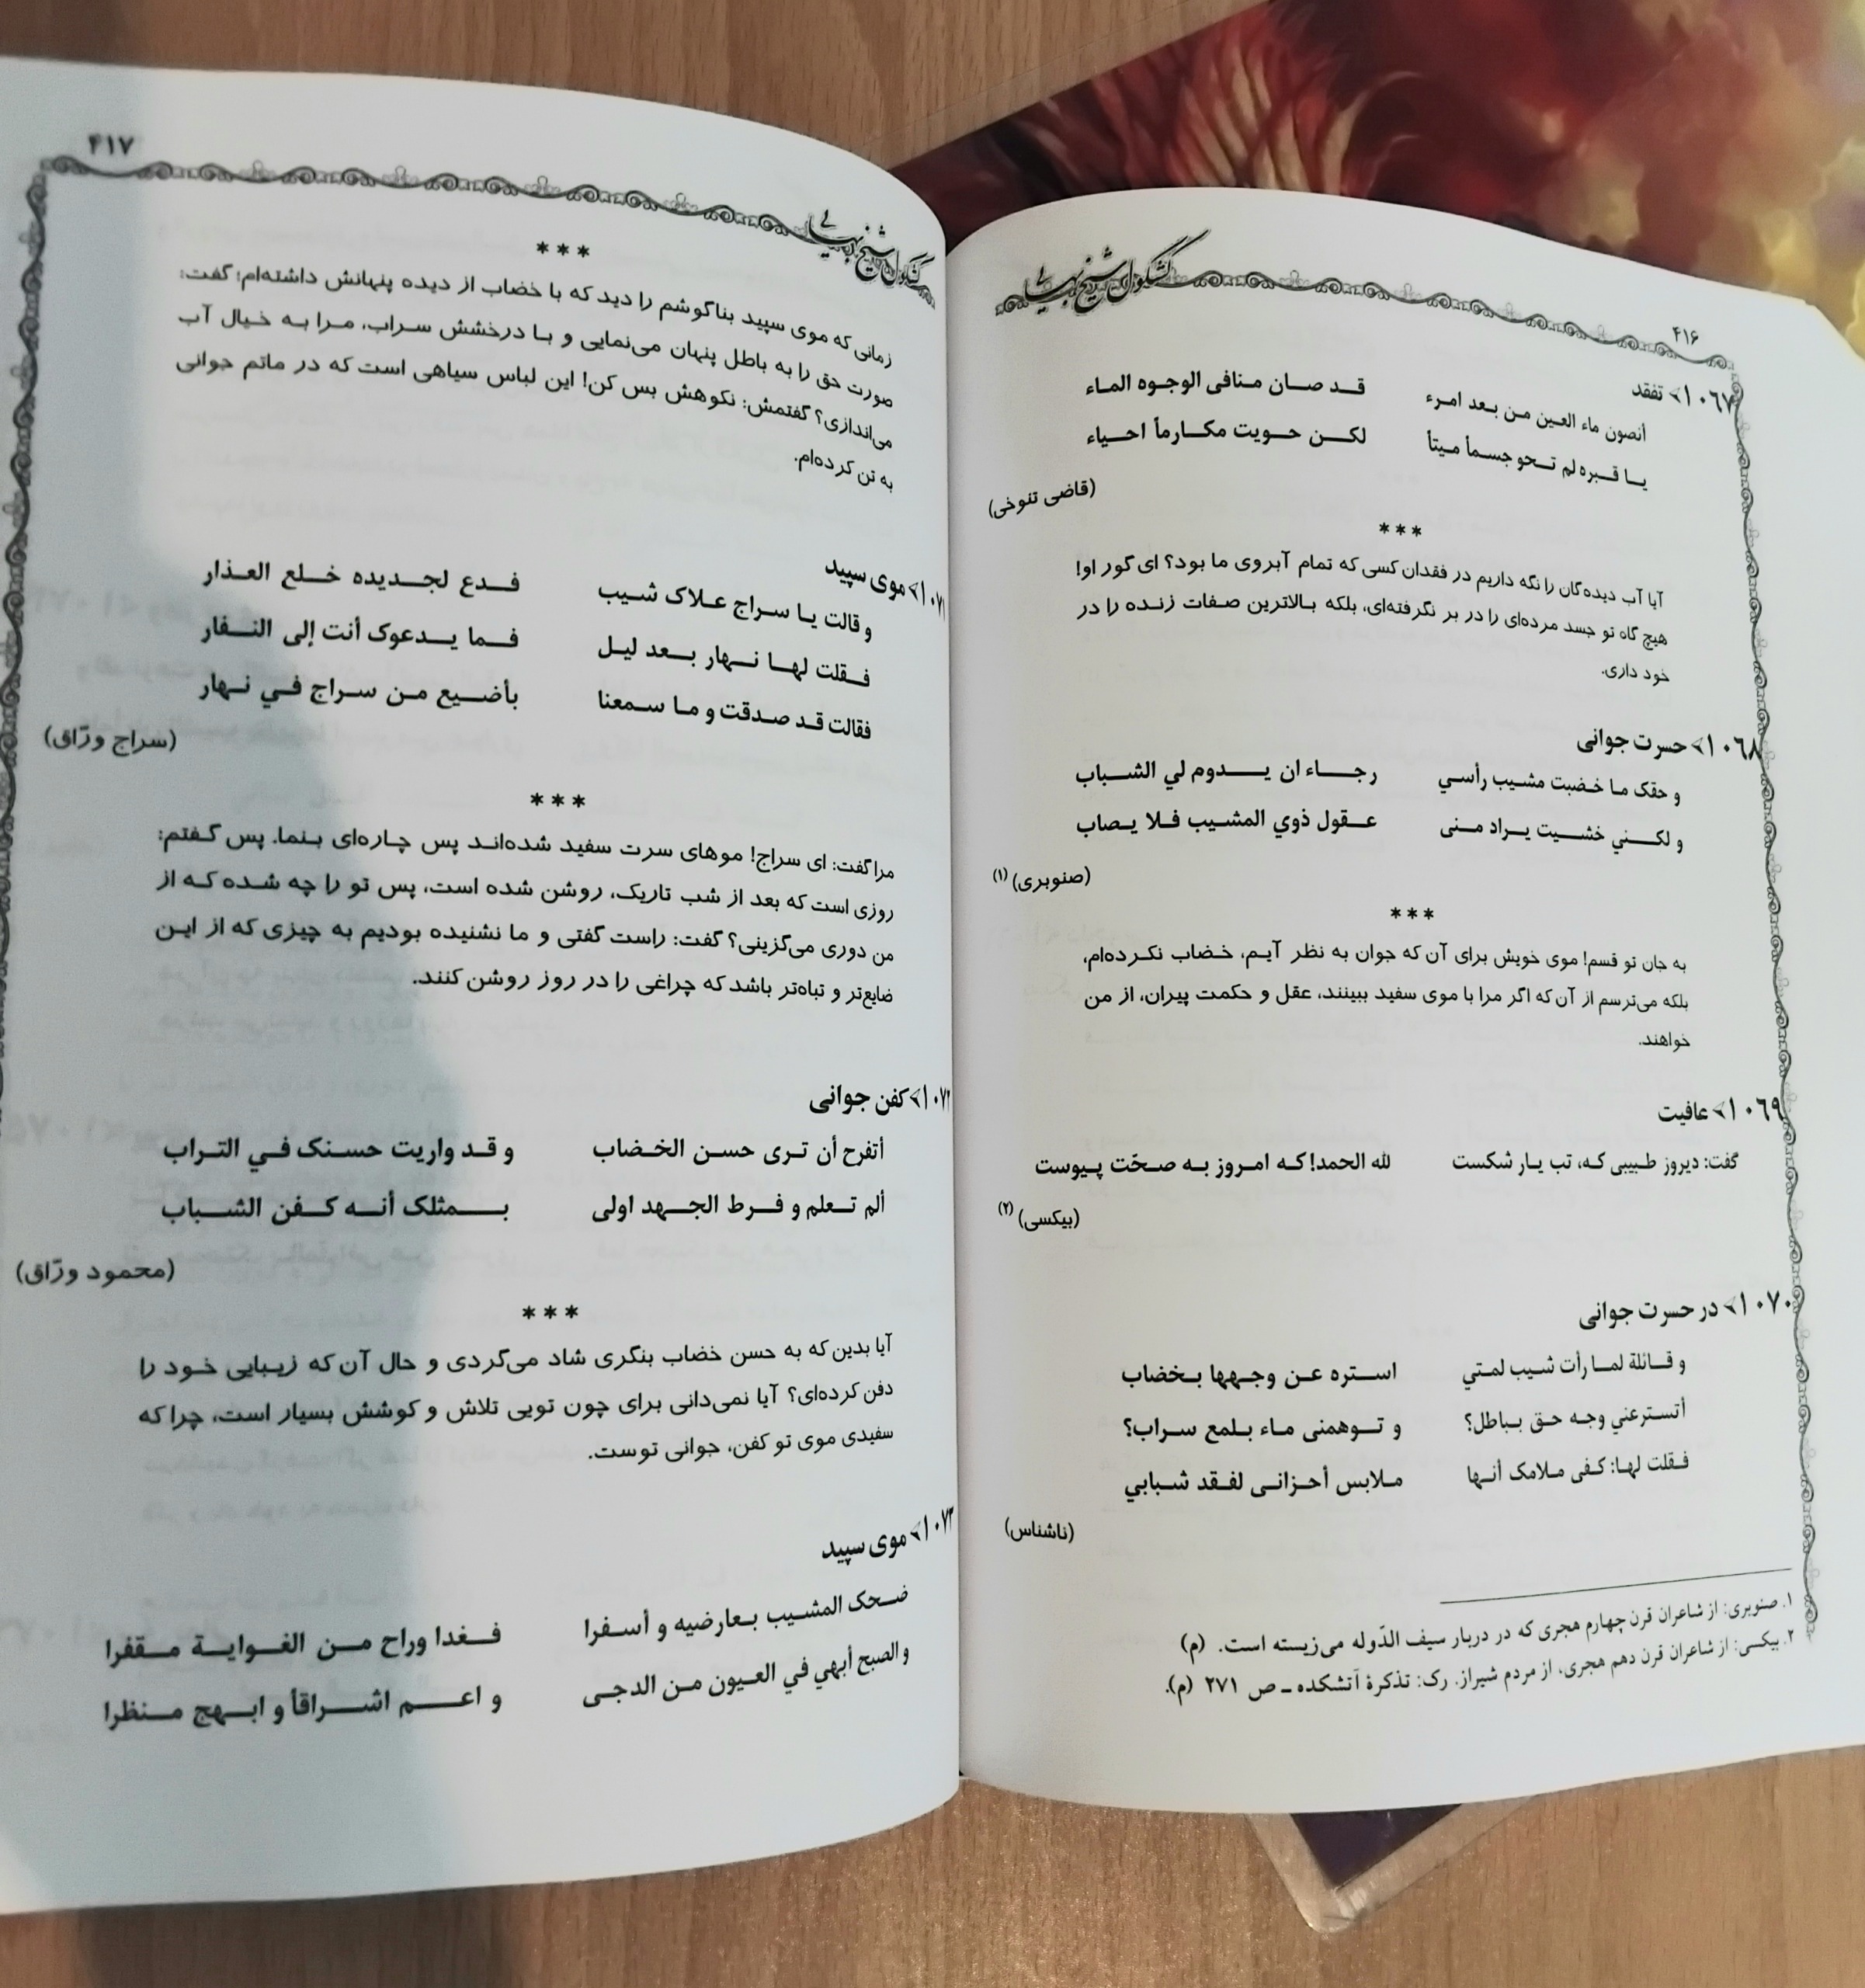 ۴۱۶
کشکول شیخ بهایی
۱۰۶۷> تفقد
أنصون ماء العین مـن بـعد امـرء قـد صـان مـنافی الوجـوه المـاء
یـا قـبره لم تـحو جسـماً مـیتاً لکـن حـویت مکـارماً احـیاء
(قاضی تنوخی)
***
آیا آب دیده‌گان را نگه داریم در فقدان کسی که تمام آبروی ما بود؟ ای گور او!
هیچ گاه تو جسد مرده‌ای را در بر نگرفته‌ای، بلکه بـالاترین صـفات زنـده را در
خود داری.
۱۰۶۸> حسرت جوانی
و حقک مـا خـضبت مشـیب رأسـي رجـاء ان یـدوم لي الشـباب
و لکـني خشـیت یـراد مـنی عـقول ذوي المشـیب فـلا یـصاب
(صنوبری) (۱)
***
به جان تو قسم! موی خویش برای آن که جوان به نظر آیـم، خـضاب نکـرده‌ام،
بلکه می‌ترسم از آن که اگر مرا با موی سفید ببینند، عقل و حکمت پیران، از من
خواهند.
۱۰۶۹> عافیت
گفت: دیروز طـبیبی کـه، تب یـار شکست لله الحمد! کـه امـروز بـه صـحّت پـیوست
(بیکسی) (۲)
۱۰۷۰> در حسرت جوانی
و قـائلة لمـا رأت شـیب لمـتي اسـتره عـن وجـهها بـخضاب
أتسـترعني وجـه حـق بـباطل؟ و تـوهمنی مـاء بـلمع سـراب؟
فـقلت لهـا: کـفی مـلامک أنـها مـلابس أحـزانـی لفـقد شـبابي
(ناشناس)
۱. صنوبری: از شاعران قرن چهارم هجری که در دربار سیف الدّوله می‌زیسته است. (م)
۲. بیکسی: از شاعران قرن دهم هجری، از مردم شیراز. رک: تذکرهٔ آتشکده ـ ص ۲۷۱ (م).
۴۱۷
کشکول شیخ بهایی
***
زمانی که موی سپید بناگوشم را دید که با خضاب از دیده پنهانش داشته‌ام؛ گفت:
صورت حق را به باطل پنهان می‌نمایی و بـا درخشش سـراب، مـرا بـه خـیال آب
می‌اندازی؟ گفتمش: نکوهش بس کن! این لباس سیاهی است که در ماتم جوانی
به تن کرده‌ام.
۱۰۷۱> موی سپید
و قالت یـا سـراج عـلاک شـیب فـدع لجـدیده خـلع العـذار
فـقلت لهـا نـهار بـعد لیـل فـما یـدعوک أنت إلی النـفار
فقالت قـد صـدقت و مـا سـمعنا بأضـیع مـن سـراج فـي نـهار
(سراج ورّاق)
***
مرا گفت: ای سراج! موهای سرت سفید شده‌انـد پس چـاره‌ای بـنما. پس گـفتم:
روزی است که بعد از شب تاریک، روشن شده است، پس تو را چه شـده کـه از
من دوری می‌گزینی؟ گفت: راست گفتی و ما نشنیده بودیم به چیزی که از ایـن
ضایع‌تر و تباه‌تر باشد که چراغی را در روز روشن کنند.
۱۰۷۲> کفن جوانی
أتفرح أن تـری حسـن الخـضاب و قـد واریت حسـنک فـي التـراب
ألم تـعلم و فـرط الجـهد اولی بـمثلک أنـه کـفن الشـباب
(محمود ورّاق)
***
آیا بدین که به حسن خضاب بنگری شاد می‌گردی و حال آن که زیـبایی خـود را
دفن کرده‌ای؟ آیا نمی‌دانی برای چون تویی تلاش و کوشش بسیار است، چرا که
سفیدی موی تو کفن، جوانی توست.
۱۰۷۳> موی سپید
ضـحک المشـیب بـعارضیه و أسـفرا فـغدا وراح مـن الغـوایـة مـقفرا
و الصبح أبهي في العـیون مـن الدجـی و اعـم اشـراقاً و ابـهج مـنظرا